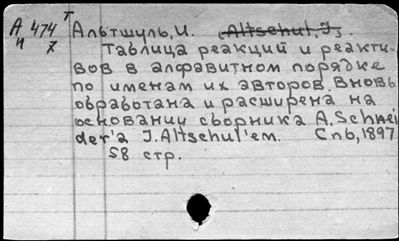 А 474 т Альтшуль, И. (Altschul, J.)
и 7 Таблица реакций и реакти-
вов в алфавитном порядке
по именам их авторов. Вновь
обработана и расширена на
основании сборника A. Schnei
der'a J. Altschul'ем. Спб, 1897
58 стр.